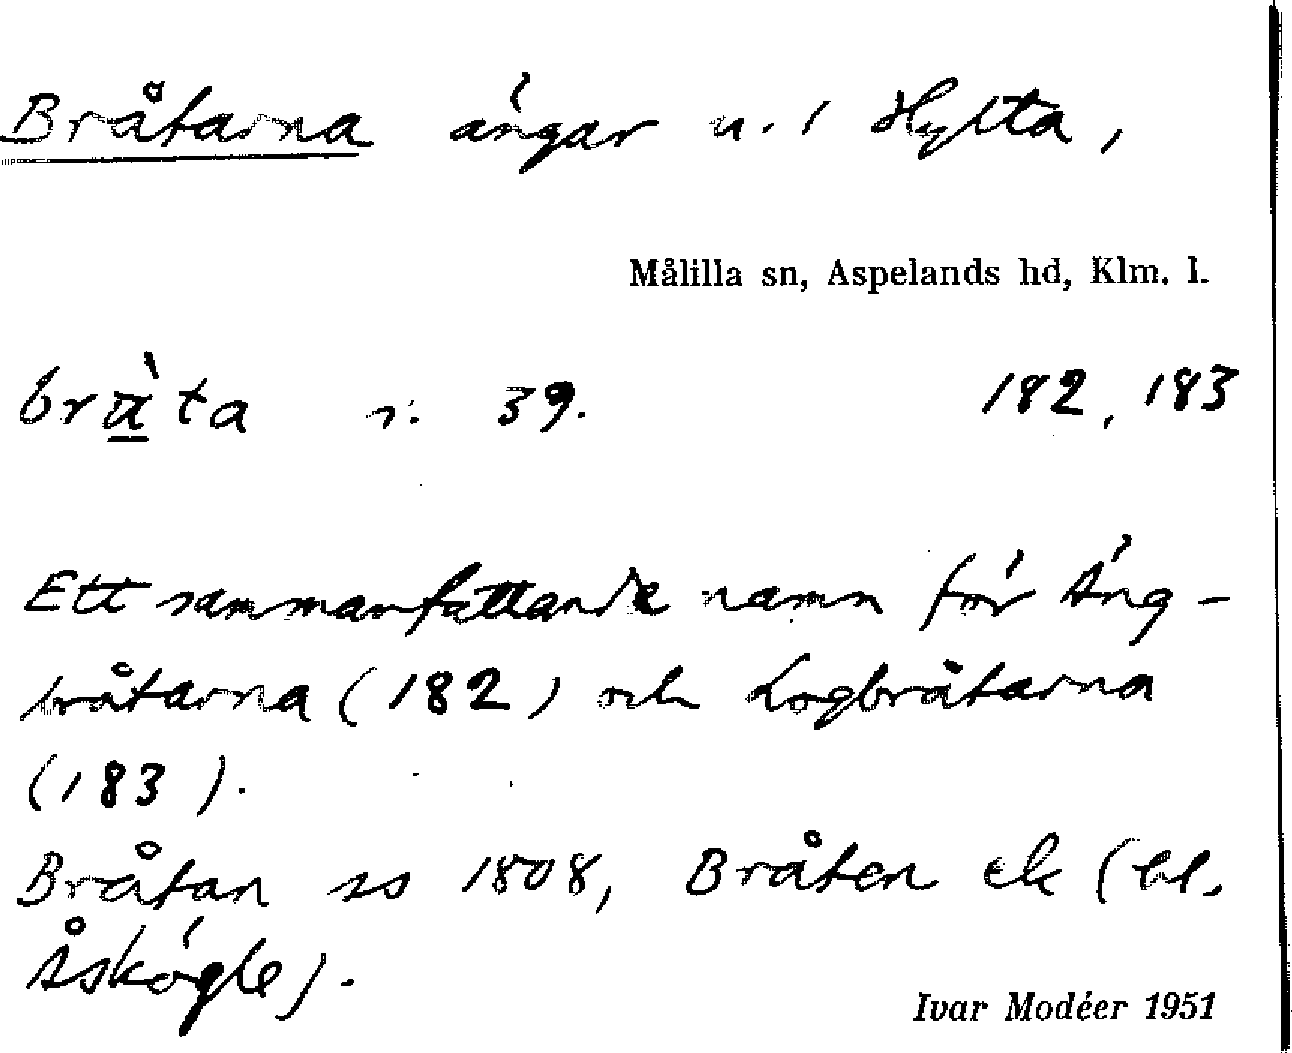 Bråtarna ängar u. i Hylta,
Målilla sn, Aspelands hd, Klm. l.
brà̱ta r. 39. 182, 183
Ett sammanfattande namn för Äng-
bråtarna (182) och Logbråtarna
(183).
Bråtan ss 1808, Bråten ek (bl.
Åskögle).
Ivar Modéer 1951